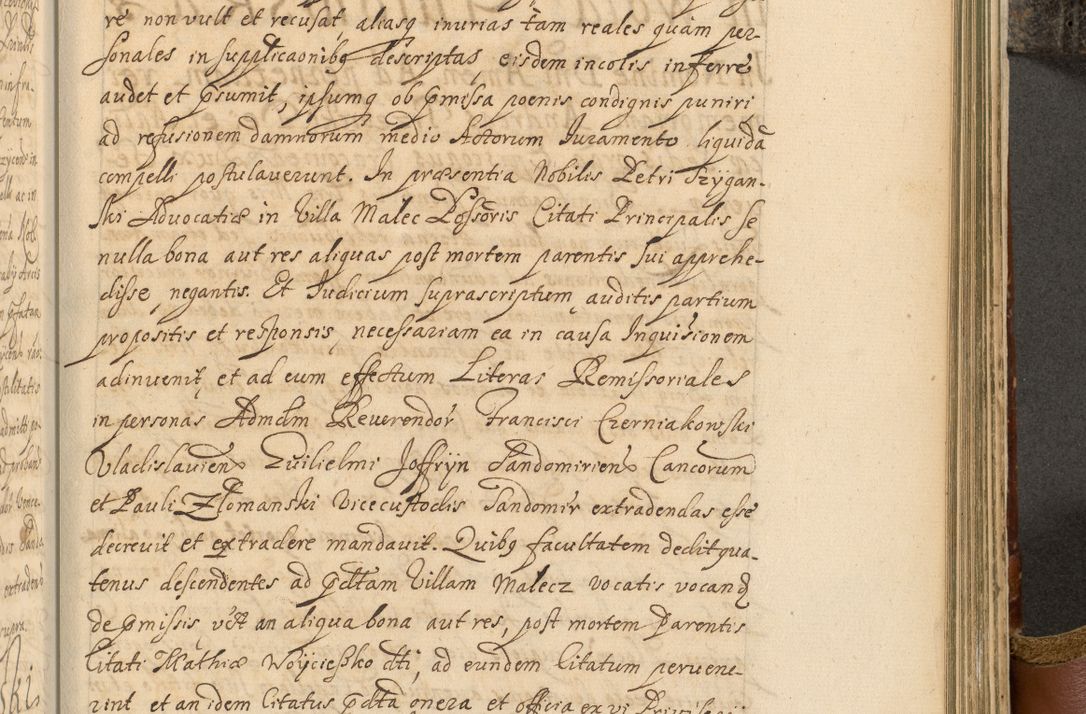 re non vult et recusat, aliasq inurias tam reales quam per-
sonales in supplicaonibq descriptas, eisdem incolis inferre
audet et psumit, ipsumq ob pmissa poenis condignis puniri
ad refusionem damnorum medio Actorum Iuramento liquida
compelli postulauerunt. In præsentia Nobilis Petri Trzygan-
ski Aduocatiæ in Villa Malec Possoris Citati Principalis se
nulla bona aut res aliquas post mortem parentis sui apprehe-
disse, negantis. Et Iudicium suprascriptum, auditis partium
propositis et responsis, necessariam ea in causa Inquisionem
adinuenit, et ad eum effectum Literas Remissoriales
in personas Admdm Reuerendor Francisci Czerniakowski
Vladislauien Guilielmi Joffryn Sandomirien Cancorum
et Pauli Złomanski Vicecustodis Sandomir extradendas esse
decreuit et extradere mandauit. Quibq facultatem dedit qua-
tenus descendentes ad pdtam Villam Malecz vocatis vocand
de pmissis vët an aliqua bona aut res, post mortem Parentis
Citati Mathiæ Woyciesko dti, ad eundem Citatum peruene-
rint et an idem Citatus pdta onera et officia ex vi Priuilegij